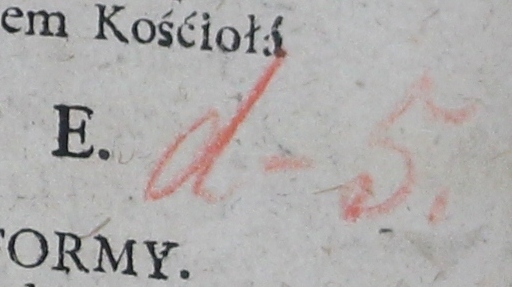 em Kościołá
E. d-5.
FORMY.